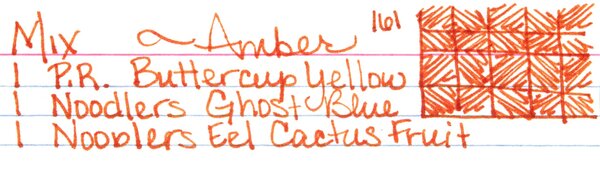 Mix ~ Amber 161
1 P.R. Buttercup Yellow
1 Noodlers Ghost Blue
1 Nooblers Eel Cactus Fruit